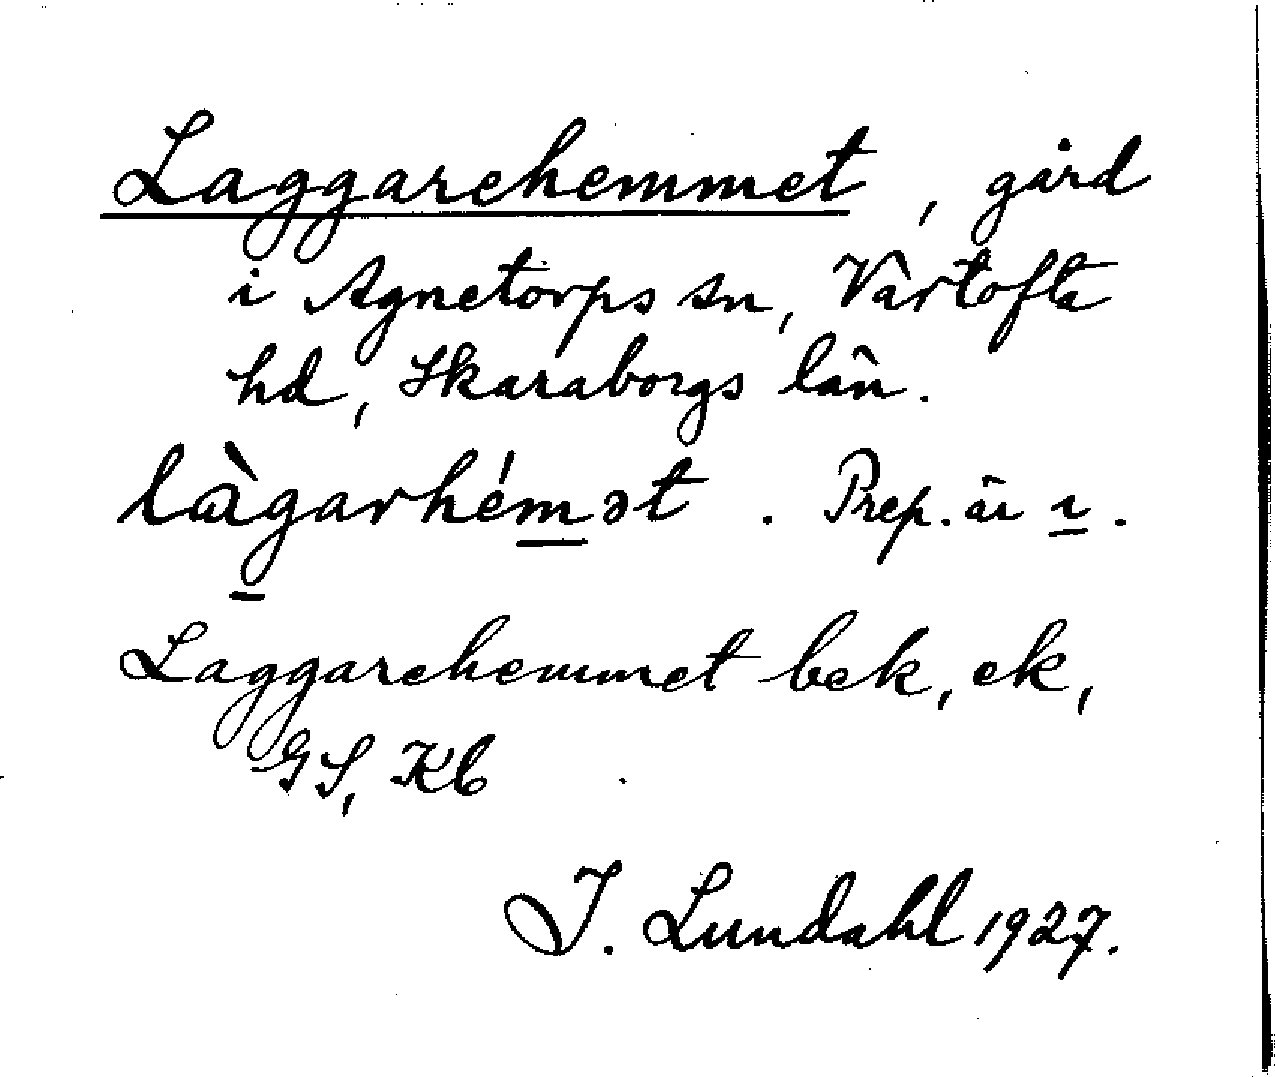 Laggarehemmet, gård
i Agnetorps sn, Vartofta
hd, Skaraborgs län.
làgarhém̲ət. Prep. är ı̲.
Laggarehemmet bek, ek,
GS, Kb
I. Lundahl 1927.